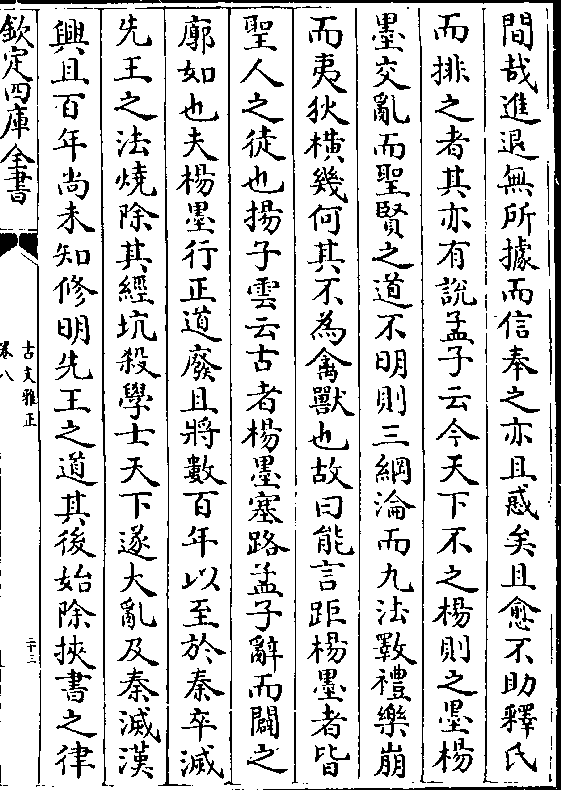 間哉進退無所據而信奉之亦且惑矣且愈不助釋氏
而排之者其亦有說孟子云今天下不之楊則之墨楊
墨交亂而聖賢之道不明則三綱淪而九法斁禮樂崩
而夷狄橫幾何其不為禽獸也故曰能言距楊墨者皆
聖人之徒也揚子雲云古者楊墨塞路孟子辭而闢之
廓如也夫楊墨行正道廢且將數百年以至於秦卒滅
先王之法燒除其經坑殺學士天下遂大亂及秦滅漢
興且百年尚未知修明先王之道其後始除挾書之律
欽定四庫全書
古文雅正
卷八
二十三